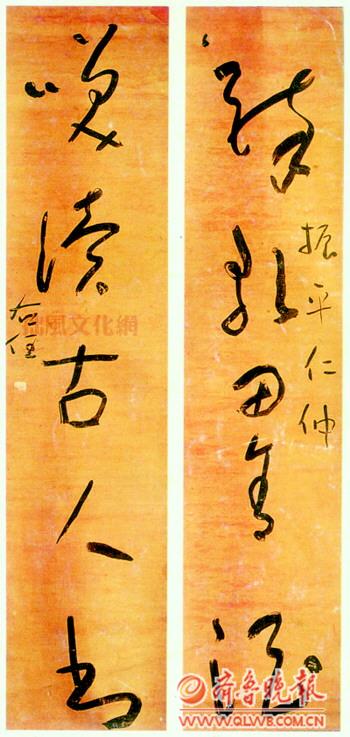 醉歌田舍酒
振平仁仲
笑讀古人書
右任
風文化網
齐鲁晚报
WWW.QLWB.COM.CN